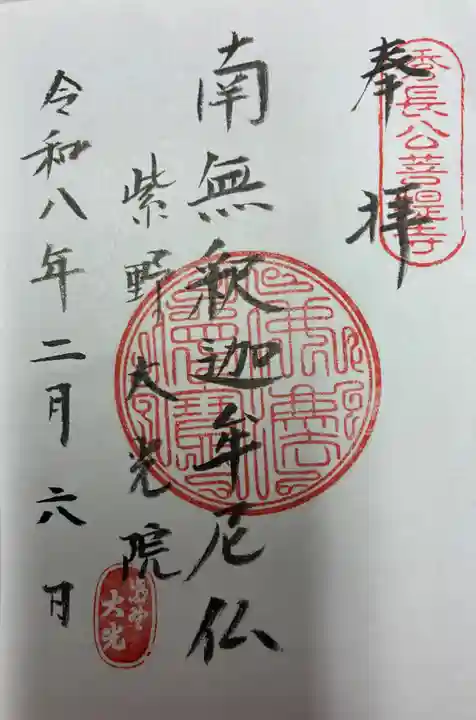 奉拝
秀長公菩提寺
南無釈迦牟尼仏
紫野大光院
令和八年二月六日
大光